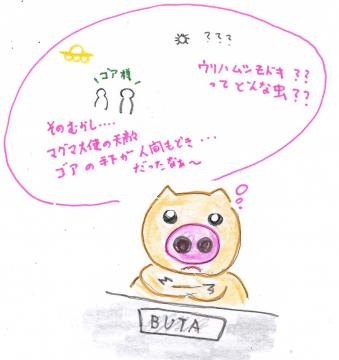 ???
ウリハムシモドキ??
って どんな虫??
ゴア様
そのむかし....
マグマ大使の天敵
ゴアの手下が人間もどき...
だったなぁ~
BUTA